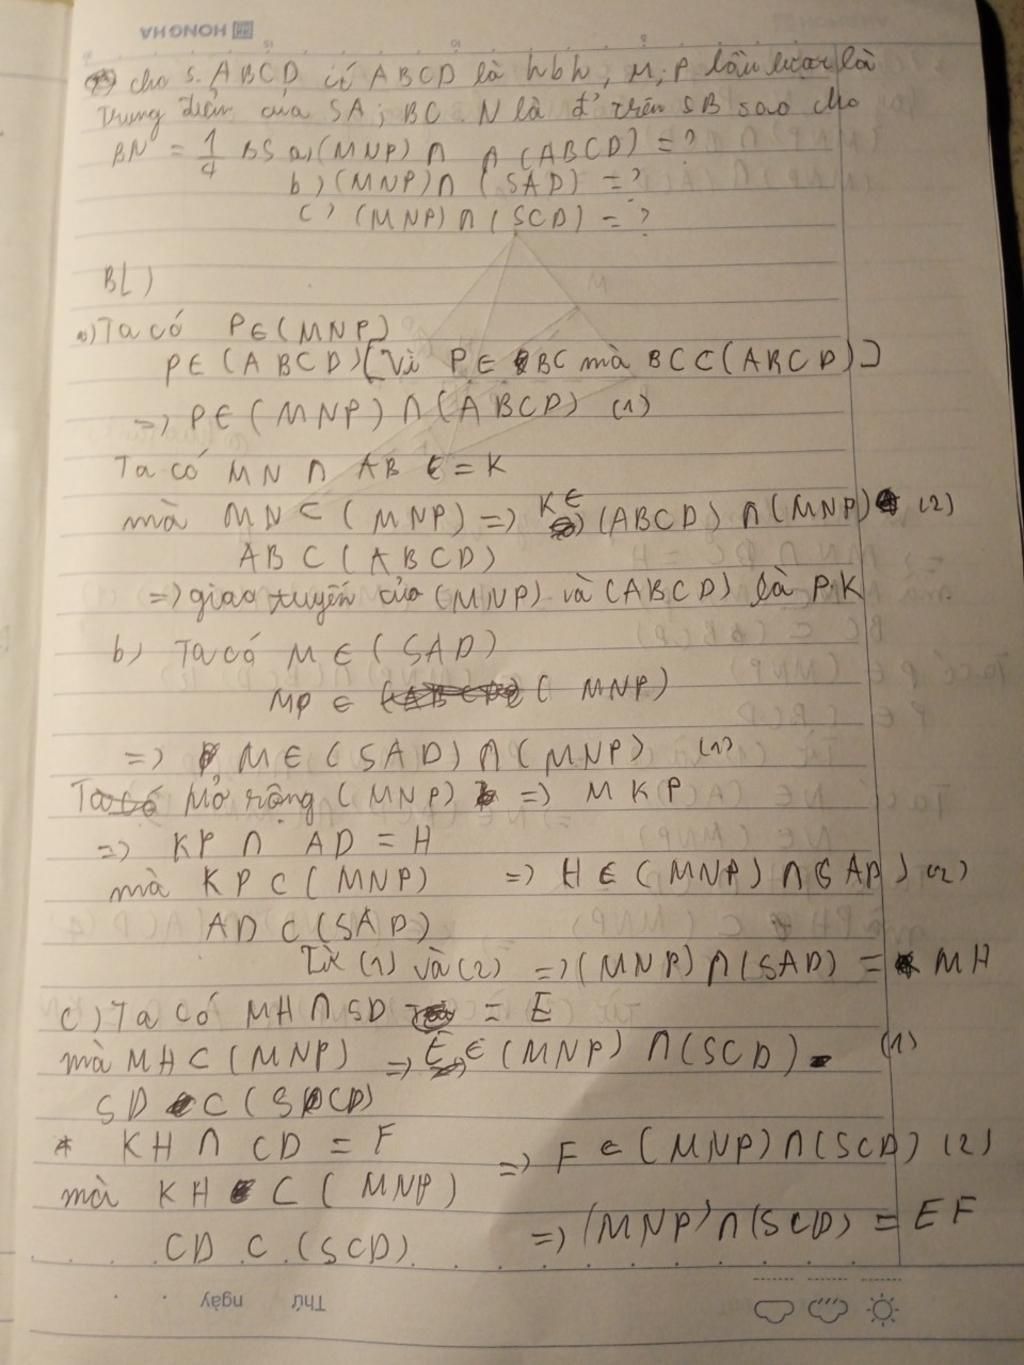 HONG HA
cho S.ABCD có ABCD là hbh, M, P lần lượt là
trung điểm của SA; BC. N là đ' trên SB sao cho
BN = 1/4 BS a, (MNP) ∩ ∩ (ABCD) = ?
b) (MNP) ∩ (SAD) = ?
c) (MNP) ∩ (SCD) = ?
BL)
a) Ta có P ∈ (MNP)
P ∈ (ABCD) [Vì P ∈ BC mà BC ⊂ (ABCD)]
=> P ∈ (MNP) ∩ (ABCD) (1)
Ta có MN ∩ AB = K
mà MN ⊂ (MNP) => K ∈ (ABCD) ∩ (MNP) (2)
AB ⊂ (ABCD)
=> giao tuyến của (MNP) và (ABCD) là PK
b) Ta có M ∈ (SAD)
MP ∈ (MNP)
=> M ∈ (SAD) ∩ (MNP) (1)
Mở rộng (MNP) => MKP
=> KP ∩ AD = H
mà KP ⊂ (MNP) => H ∈ (MNP) ∩ (SAD) (2)
AD ⊂ (SAD)
Từ (1) và (2) => (MNP) ∩ (SAD) = MH
c) Ta có MH ∩ SD = E
mà MH ⊂ (MNP) => E ∈ (MNP) ∩ (SCD) (1)
SD ⊂ (SCD)
* KH ∩ CD = F => F ∈ (MNP) ∩ (SCD) (2)
mà KH ⊂ (MNP)
CD ⊂ (SCD) => (MNP) ∩ (SCD) = EF
Thứ ngày